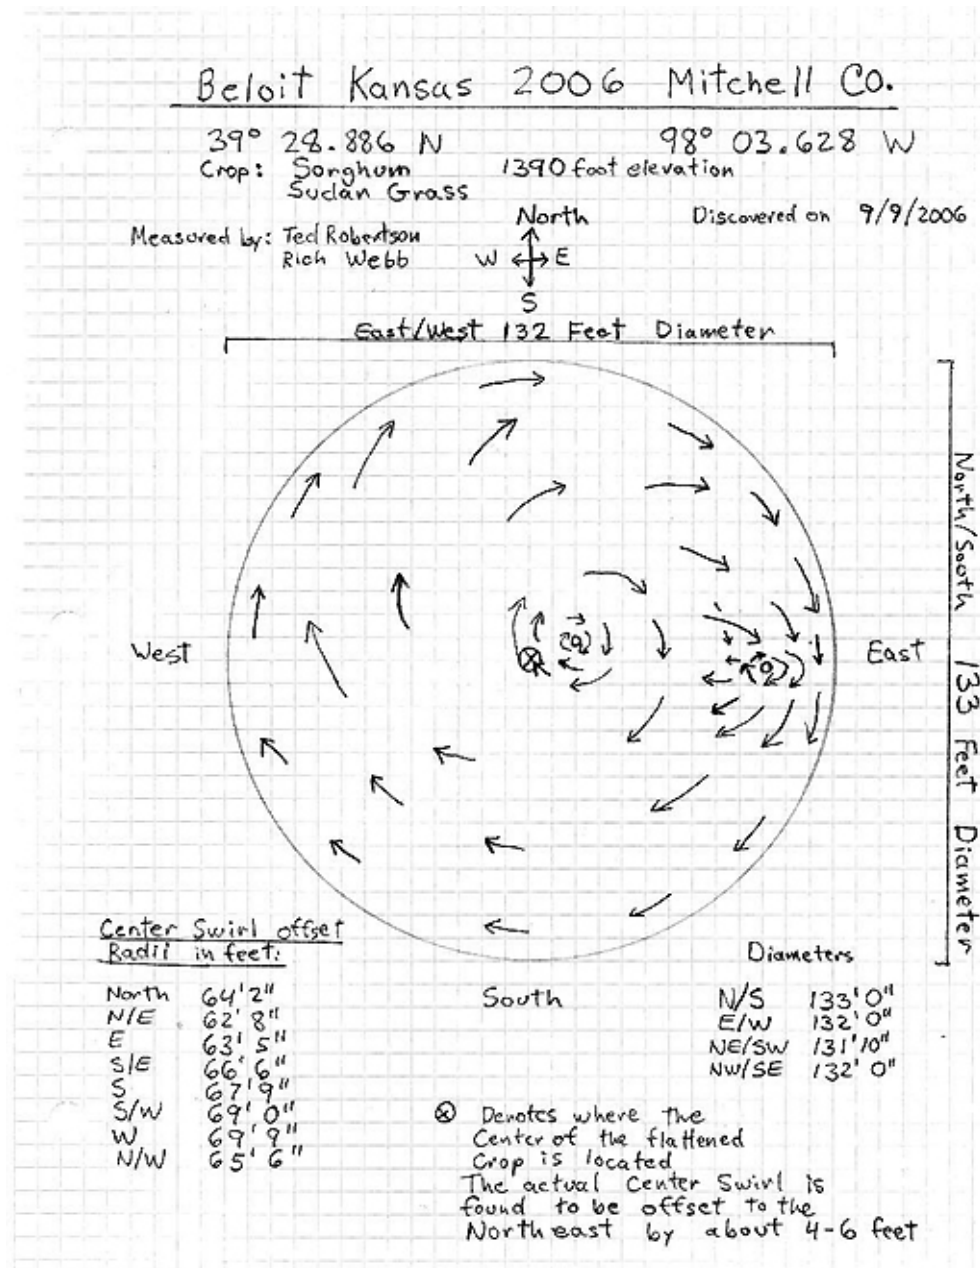 Beloit Kansas 2006 Mitchell CO.
39° 28.886 N 98° 03.628 W
Crop: Sorghum 1390 foot elevation
Sudan Grass
North Discovered on 9/9/2006
Measured by: Ted Robertson
Rich Webb W E
S
East/West 132 Feet Diameter
North/South 133 Feet Diameter
West East
Center Swirl offset
Radii in feet:
Diameters
North 64'2"
N/E 62' 8"
E 63' 5"
S/E 66' 6"
S 67'9"
S/W 69' 0"
W 69' 9"
N/W 65' 6"
South
N/S 133'0"
E/W 132'0"
NE/SW 131'10"
NW/SE 132' 0"
⊗ Denotes where the
Center of the flattened
Crop is located
The actual Center Swirl is
found to be offset to the
Northeast by about 4-6 feet